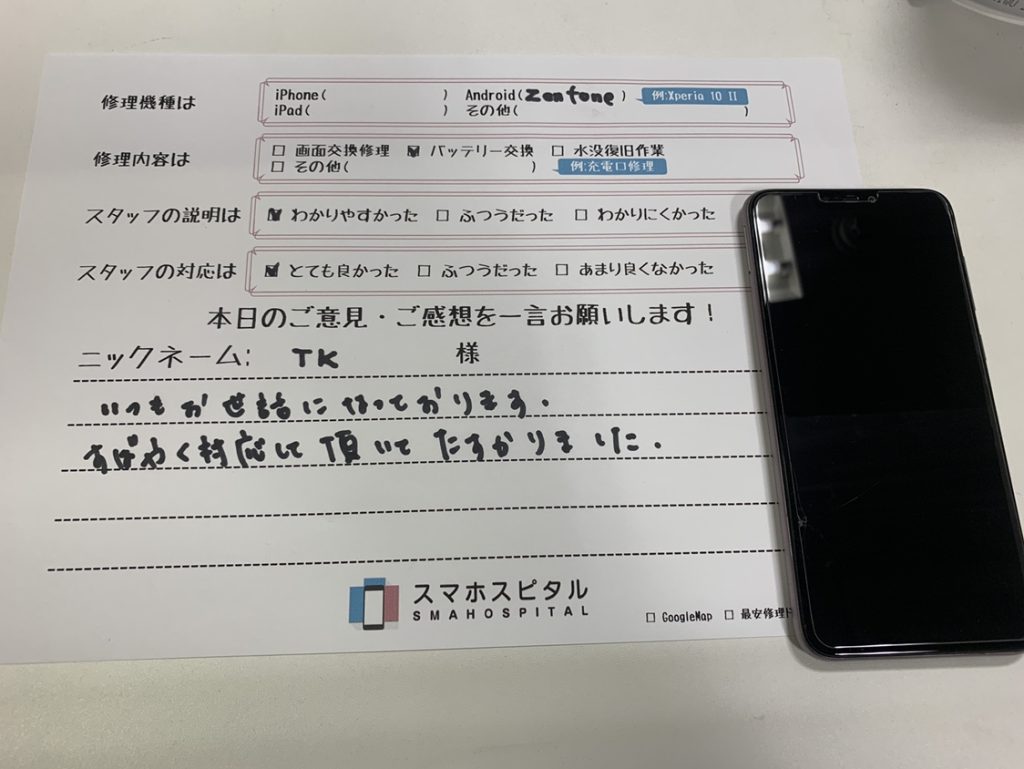 修理機種は
iPhone( ) Android(Zenfone) 例:Xperia 10 II
iPad( ) その他( )
修理内容は
☐ 画面交換修理 ☑ バッテリー交換 ☐ 水没復旧作業
☐ その他( ) 例:充電口修理
スタッフの説明は ☑ わかりやすかった ☐ ふつうだった ☐ わかりにくかった
スタッフの対応は ☑ とても良かった ☐ ふつうだった ☐ あまり良くなかった
本日のご意見・ご感想を一言お願いします!
ニックネーム: TK 様
いつもお世話になっております.
すばやく対応して頂いてたすかりました.
スマホスピタル
SMAHOSPITAL
☐ GoogleMap ☐ 最安修理